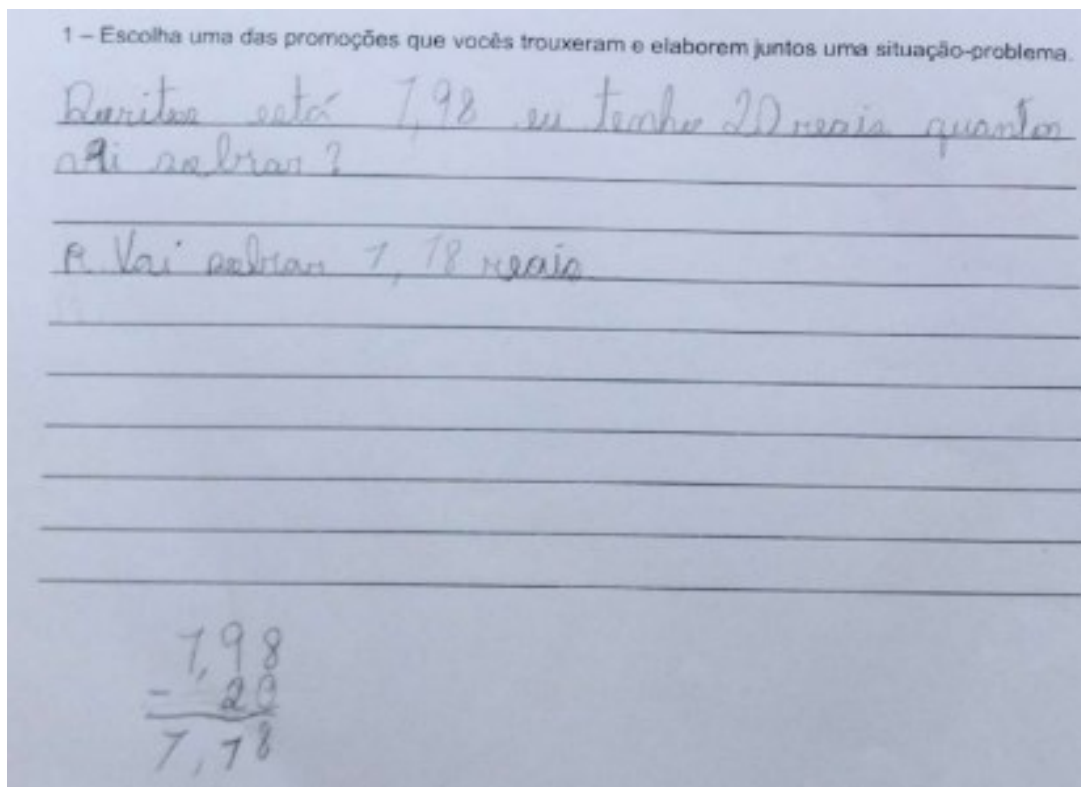 1 – Escolha uma das promoções que vocês trouxeram e elaborem juntos uma situação-problema.
Doritos está 7,98 eu tenho 20 reais quantos
vai sobrar?
R Vai sobrar 7,78 reais
7,98
- 20
7,78